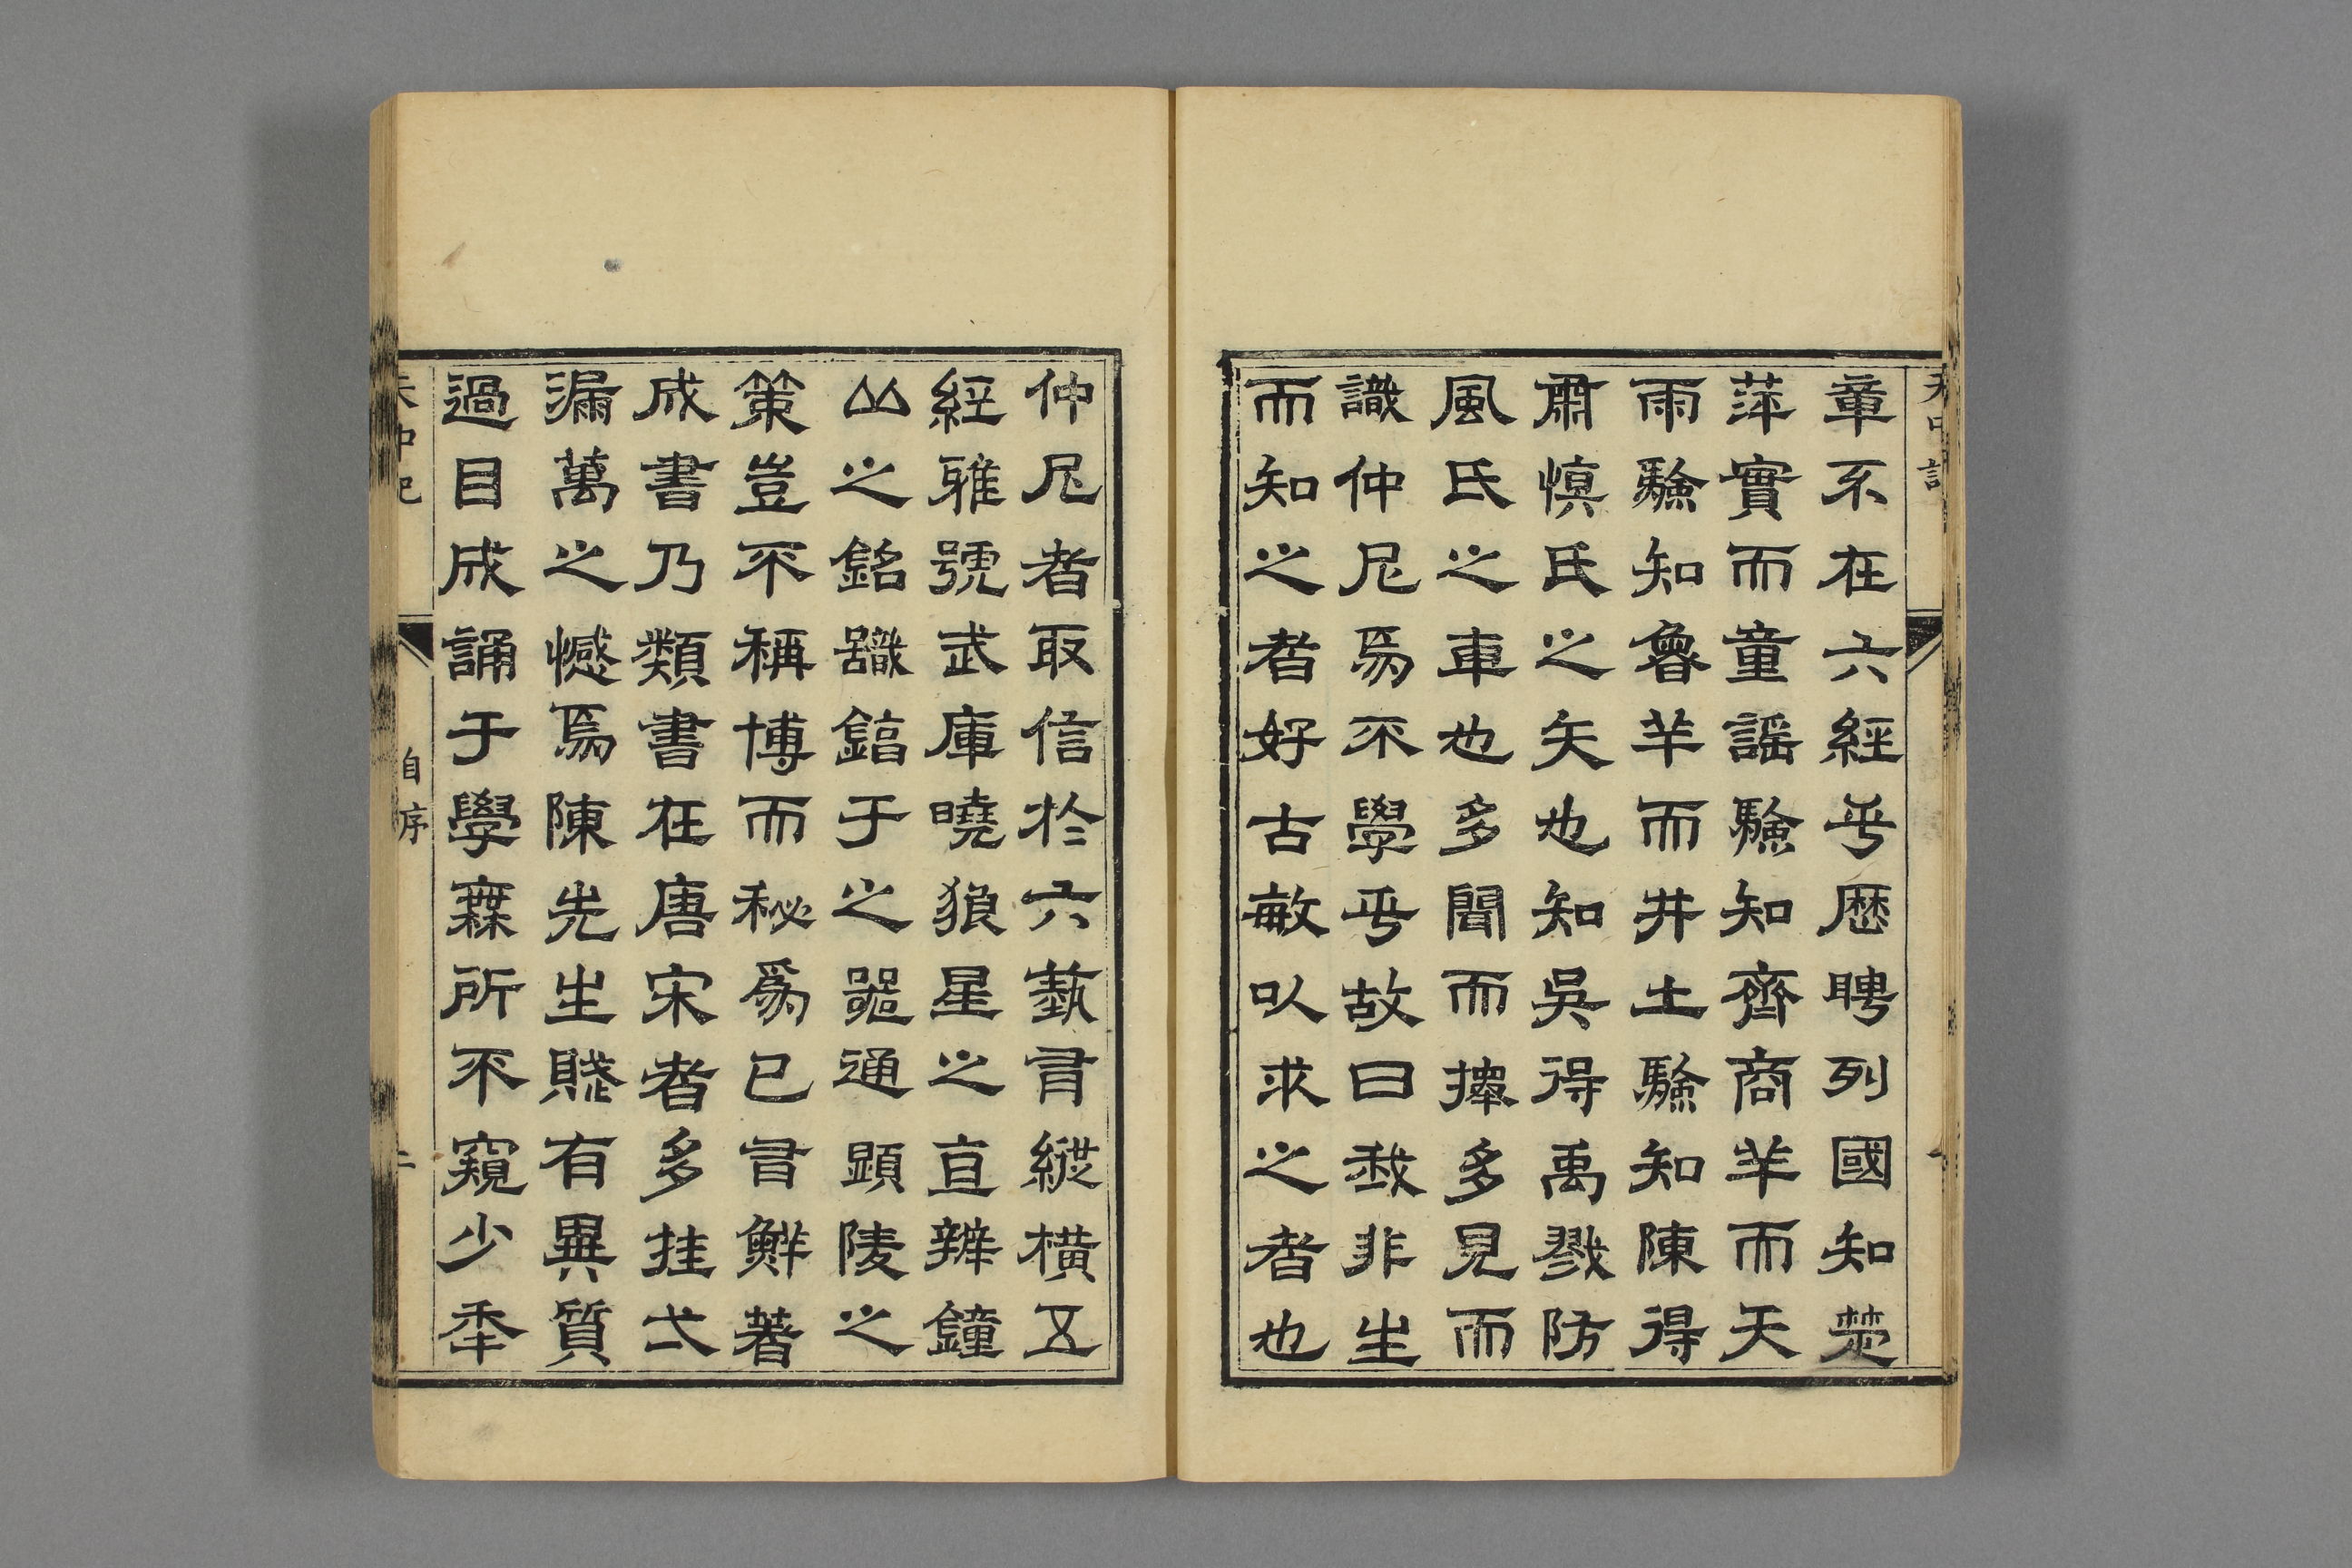 章不在六經乎歷聘列國知楚
萍實而童謠驗知齊商羊而天
雨驗知魯羊而井土驗知陳得
肅慎氏之矢也知吳得禹戮防
風氏之車也多聞而擇多見而
識仲尼焉不學乎故曰我非生
而知之者好古敏以求之者也
仲尼者取信於六藝言縱橫五
經雅號武庫曉狼星之直辨鐘
山之銘識錞于之器通顯陵之
策豈不稱博而秘爲己言鮮著
成書乃類書在唐宋者多挂弌
漏萬之憾焉陳先生賤有異質
過目成誦于學無所不窺少年
自序
二